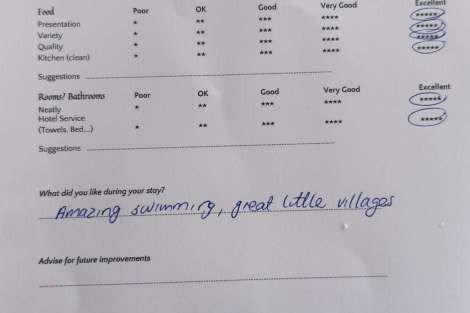 Food Poor OK Good Very Good Excellent
Presentation * ** *** **** *****
Variety * ** *** **** *****
Quality * ** *** **** *****
Kitchen (clean) * ** *** **** *****
Suggestions
Rooms/ Bathrooms Poor OK Good Very Good Excellent
Neatly * ** *** **** *****
Hotel Service
(Towels, Bed,...) * ** *** **** *****
Suggestions
What did you like during your stay?
Amazing swimming, great little villages
Advise for future improvements